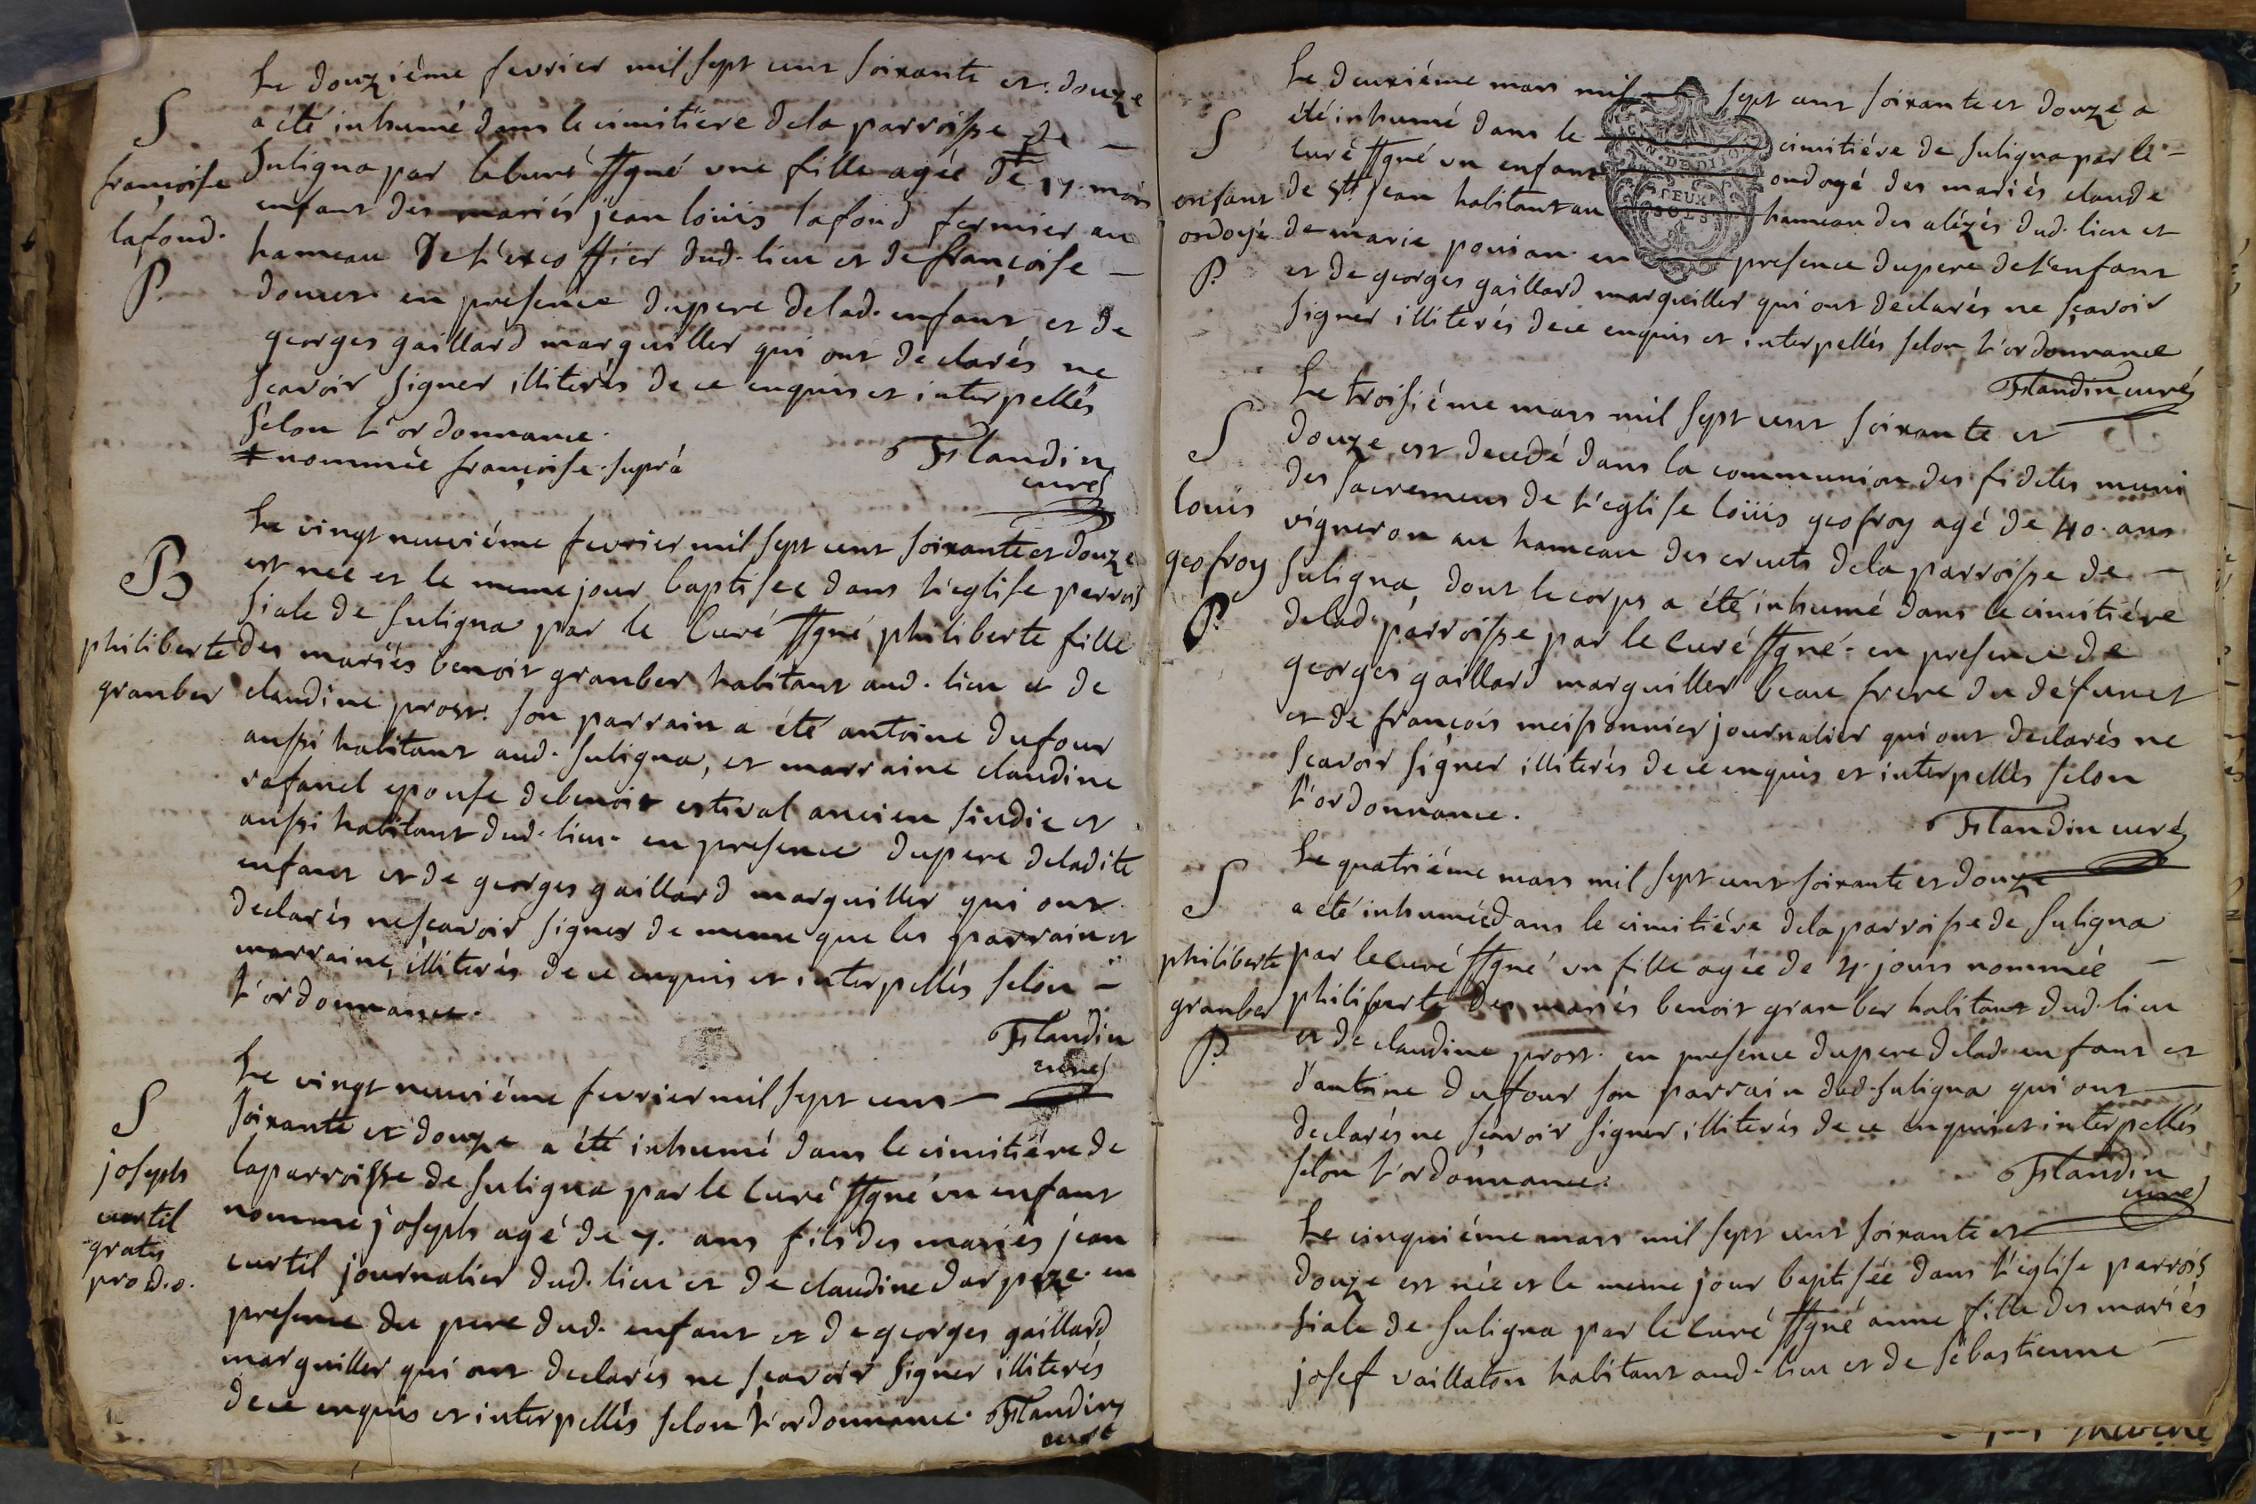 Le douziéme fevrier mil sept cent soixante et douze
a été inhumé dans le cimitiére dela parroisse de —
S
françoise
lafond.
P.
Suligna par le Curé ssgné une fille agée de 17. mois
enfant des mariés jean loüis lafond fermier au
hameau de l'escoffier dud. lieu et de françoise —
en presence du pere delad. enfant et de
georges gaillard marguiller qui ont declarés ne
sçavoir signer illiterés de ce enquis et interpellés
selon l'ordonnance.
nommée françoise. suprà
Flandin
curé
Le vingt neuviéme fevrier mil sept cent soixante et douze
est née et le meme jour baptisée dans l'eglise parrois
B
philiberte
granber
siale de Suligna par le Curé ssgné philiberte fille
des mariés benoit granber habitant aud. lieu et de
claudine prost. son parrain a été antoine dufour
aussi habitant aud. Suligna, et marraine claudine
rafanel epouse de benoit estival ancien sindic et
aussi habitant dud. lieu. en presence du pere deladite
enfant et de georges gaillard marguiller qui ont
declarés ne sçavoir signer de meme que les parrain et
marraine, illiterés de ce enquis et interpellés selon —
l'ordonnance.
Flandin
curé
Le vingt neuviéme fevrier mil sept cent —
S
joseph
curtil
gratis
pro deo.
soixante et douze a été inhumé dans le cimitiére de
la parroisse de Suligna par le Curé ssgné un enfant
nommé joseph agé de 7. ans fils des mariés jean
curtil journalier dud. lieu et de claudine darpeze. en
presence du pere dud. enfant et de georges gaillard
marguiller qui ont declarés ne sçavoir signer illiterés
de ce enquis et interpellés selon l'ordonnance. Flandin
curé
Le deuxiéme mars mil sept cent soixante et douze a
S
enfant
ondoyé
P.
été inhumé dans le cimitiére de Suligna par le —
Curé ssgné un enfant ondoyé des mariés claude
de St jean habitant au hameau des alézés dud. lieu et
de marie ponson. en presence du pere de l'enfant
et de georges gaillard marguiller qui ont declarés ne sçavoir
signer illiterés de ce enquis et interpellés selon l'ordonnance
Flandin curé
DEUX
SOLS
Le troisiéme mars mil sept cent soixante et
S
louis
geofroy
P.
douze est decedé dans la communion des fideles muni
des sacremens de l'eglise loüis geofroy agé de 40. ans
vigneron au hameau des cruts dela parroisse de —
Suligna, dont le corps a été inhumé dans le cimitiére
delad. parroisse par le Curé ssgné. en presence de
georges gaillard marguiller beau frere du défunct
et de françois meissonnier journalier qui ont declarés ne
sçavoir signer illiterés de ce enquis et interpellés selon
l'ordonnance.
Flandin curé
Le quatriéme mars mil sept cent soixante et douze
S
philiberte
granber
P.
a été inhumée dans le cimitiére dela parroisse de Suligna
par le Curé ssgné un fille agée de 4. jours nommée —
philiberte des mariés benoit granber habitant dud. lieu
et de claudine prost. en presence du pere delad. enfant et
d'antoine dufour son parrain dud. Suligna qui ont —
declarés ne sçavoir signer illiterés de ce enquis et interpellés
selon l'ordonnance.
Flandin
curé
Le cinquiéme mars mil sept cent soixante et
douze est née et le meme jour baptisée dans l'eglise parrois
siale de Suligna par le Curé ssgné anne fille des mariés
josef vaillaton habitant aud. lieu et de sebastienne —